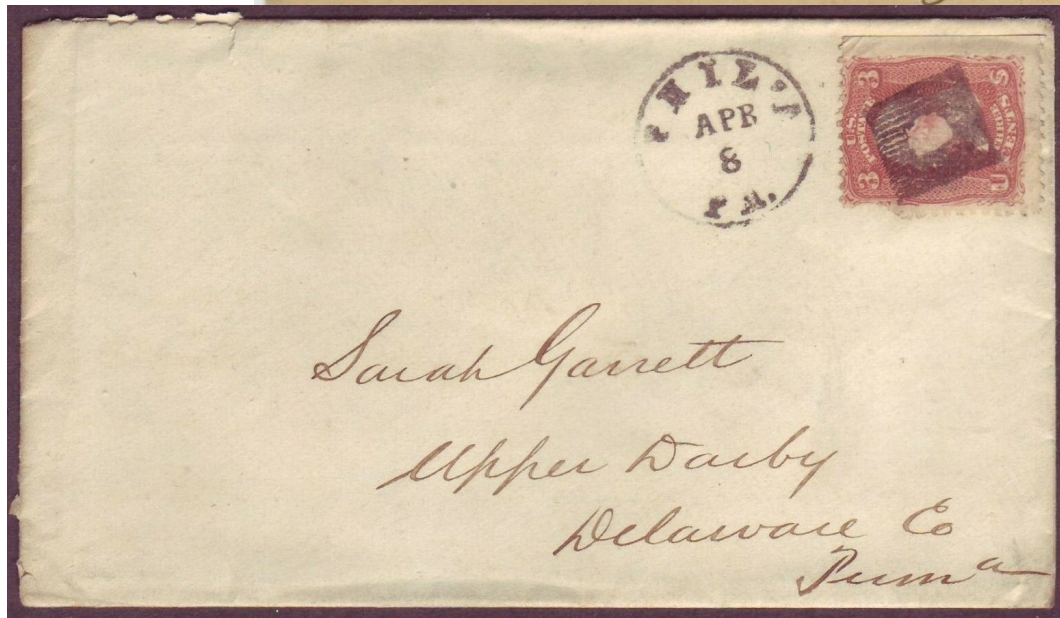 PHIL'A
APR
8
PA.
3 U.S. POSTAGE 3
U THREE CENTS S
Sarah Garrett
Upper Darby
Delaware Co
Penna